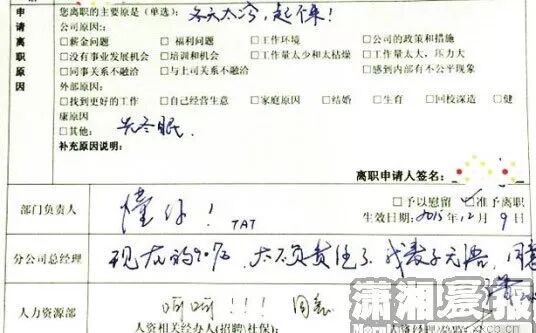 申请离职原因
您离职的主要原是(单选): 冬天太冷，起不来!
公司原因:
□薪金问题 □福利问题 □工作环境 □公司的政策和措施
□没有事业发展机会 □培训和机会 □工作量太少和太枯燥 □工作量太大，压力大
□同事关系不融洽 □与上司关系不融洽 □感到内部有不公平现象
外部原因:
□找到更好的工作 □自己经营生意 □家庭原因 □结婚 □生育 □回校深造 □健
康原因
□其他: 先冬眠.
补充原因说明:
离职申请人签名:
部门负责人 懂你! TAT
□予以慰留 准予离职
生效日期: 2015年12月9日
分公司总经理 现在的90后，太不负责任了，我表示无语，同意
人力资源部 呵呵!!! 同意
人资相关经办人(招聘/社保):
潇湘晨报